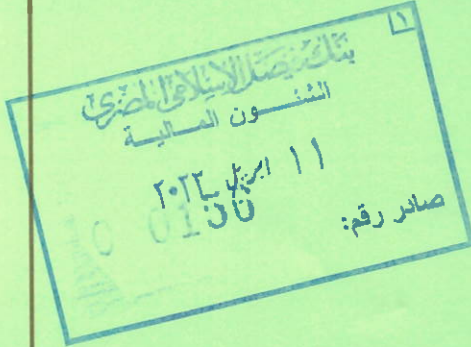 ١
بنك فيصل الإسلامي المصري
الشئون المالية
١١ ابريل ٢٠٢٢
صادر رقم: